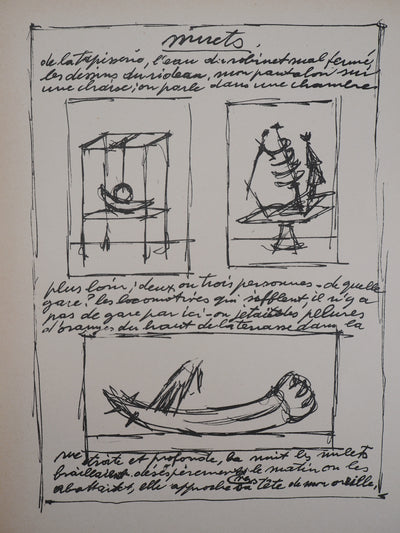 muets.
de la tapisserie, l'eau du robinet mal fermé,
les dessins du rideau, mon pantalon sur
une chaise; on parle dans une chambre
plus loin; deux ou trois personnes - de quelle
gare? les locomotives qui sifflent, il n'y a
pas de gare par ici - on jetait des pelures
d'oranges du haut de la terrasse dans la
rue droite et profonde, la nuit les mulets
braillaient désespérément vers le matin on les
abattait, elle approche sa tête de mon oreille,